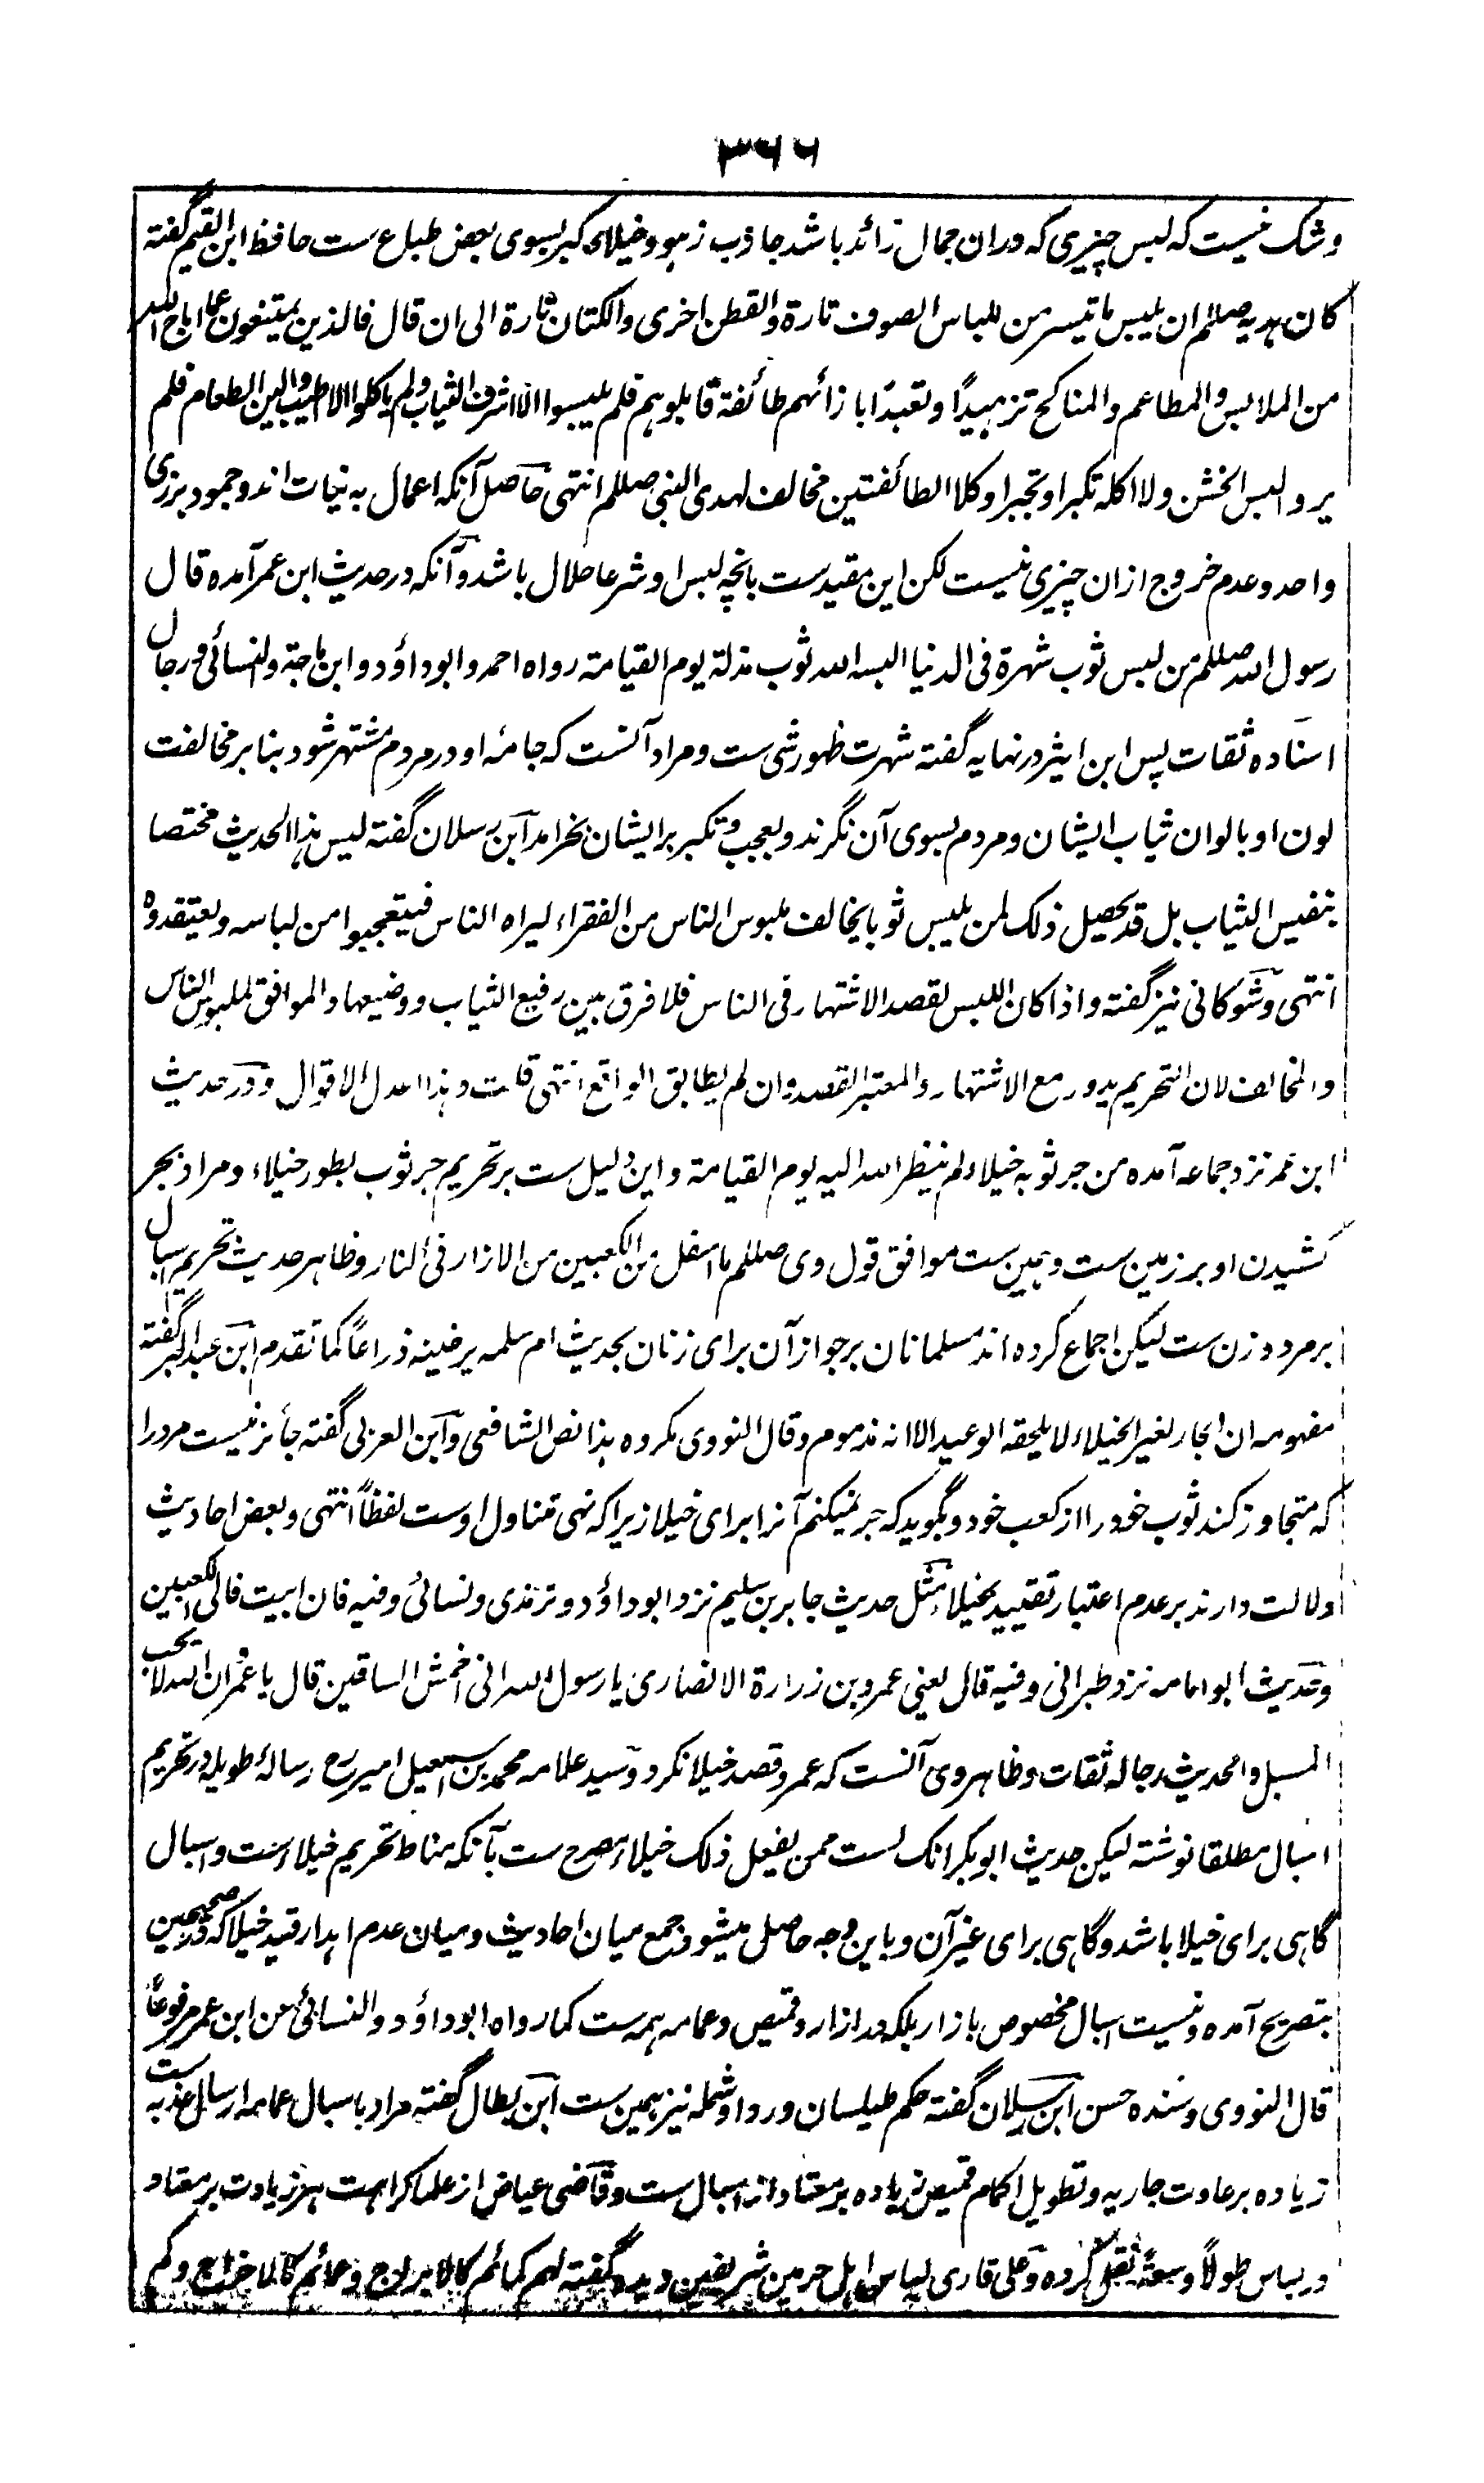 ۳۶۶
وشک نیست که لبس چیزی که دران جمال زائد باشد جاذب زہو و خیلای کبر بسوی بعض طباع ست حافظ ابن القیم گفته
کان ہدیه صللم ان یلبس ما تیسر من للباس الصوف تارة والقطن اخری والکتان تارة الی ان قال فالذین یمتنعون عما اباح الله
من الملابس والمطاعم والمناکح تزہیدًا وتعبدًا بازائهم طائفة قابلوہم فلم یلبسوا الا اشرف الثیاب ولم یاکلوا الا اطیب والین الطعام فلم
یروا لبس الخشن ولا اکله تکبرا وتجبرا وکلا الطائفتین مخالف لهدی النبی صللم انتهی حاصل آنکه اعمال به نیات اند وجمود بزی
واحد وعدم خروج ازان چیزی نیست لکن این مقیدست بانچه لبس او شرعا حلال باشد وآنکه درحدیث ابن عمر آمده قال
رسول الله صللم من لبس ثوب شهرة فی الدنیا البسه الله ثوب مذلة یوم القیامة رواه احمد وابوداؤد وابن ماجة والنسائی ورجال
اسناده ثقات پس ابن اثیر درنهایه گفته شهرت ظهور شی ست ومراد آنست که جامۂ او درمردم مشتهر شود بنا بر مخالفت
لون او بالوان ثیاب ایشان ومردم بسوی آن نگرند وبعجب وتکبر برایشان بخرامد ابن رسلان گفته لیس ہذا الحدیث مختصا
بنفیس الثیاب بل قد یحصل ذلک لمن یلبس ثوبا یخالف ملبوس الناس من الفقراء لیراه الناس فیتعجبوا من لباسه ویعتقدوه
انتهی وشوکانی نیز گفته واذا کان اللبس لقصد الاشتهار فی الناس فلا فرق بین رفیع الثیاب ووضیعها والموافق لملبوس الناس
والمخالف لان التحریم یدور مع الاشتهار والمعتبر القصد وان لم یطابق الواقع انتهی قلت وہذا اعدل الاقوال ودر حدیث
ابن عمر نزد جماعه آمده من جر ثوبه خیلاء لم ینظر الله الیه یوم القیامة واین دلیل ست برتحریم جر ثوب بطور خیلاء ومراد بجر
کشیدن او بر زمین ست وہمین ست موافق قول وی صللم ما اسفل من الکعبین من الازار فی النار وظاہر حدیث تحریم اسبال
برمرد وزن ست لیکن اجماع کرده اند مسلمانان برجواز آن برای زنان بحدیث ام سلمه یرخینه ذراعًا کما تقدم ابن عبدالبر گفته
مفهومه ان الجار لغیر الخیلاء لا یلحقه الوعید الا انه مذموم وقال النووی مکروه ہذا نص الشافعی وابن العربی گفته جائز نیست مرد را
که متجاوز کند ثوب خود را از کعب خود وبگوید که جر نمیکنم آنرا برای خیلا زیراکه نهی متناول اوست لفظًا انتهی وبعض احادیث
دلالت دارند برعدم اعتبار تقیید بخیلاء مثل حدیث جابر بن سلیم نزد ابوداؤد وترمذی ونسائی وفیه فان ابیت فالی الکعبین
وحدیث ابوامامه نزد طبرانی وفیه قال یعنی عمرو بن زرارة الانصاری یا رسول الله انی اخمش الساقین قال یا عمرو ان الله لا یحب
المسبل والحدیث رجاله ثقات وظاہر وی آنست که عمرو قصد خیلا نکرد وسید علامه محمد بن اسمعیل امیر رح رسالۂ طویله درتحریم
اسبال مطلقا نوشته لیکن حدیث ابوبکر انک لست ممن یفعل ذلک خیلاء مصرح ست بآنکه مناط تحریم خیلاء ست واسبال
گاہی برای خیلا باشد وگاہی برای غیر آن وباین وجه حاصل میشود جمع میان احادیث ومیان عدم اہدار قید خیلا که درصحیحین
بتصریح آمده ونیست اسبال مخصوص بازار بلکه در ازار وقمیص وعمامه ہمه ست کما رواه ابوداؤد والنسائی عن ابن عمر مرفوعًا
قال النووی وسنده حسن ابن رسلان گفته حکم طیلسان وردا وشمله نیز ہمین ست ابن بطال گفته مراد باسبال عمامه ارسال عذبه ست
زیاده برعادت جاریه وتطویل اکمام قمیص زیاده برمعتاد از اسبال ست وقاضی عیاض از علما کراہت ہر زیادت برمعتاد
درلباس طولاً وسعةً نقل کرده وعلی قاری لباس اہل حرمین شریفین دیده گفته لهم کمائم کالابراج وعمائم کالاخراج وکم